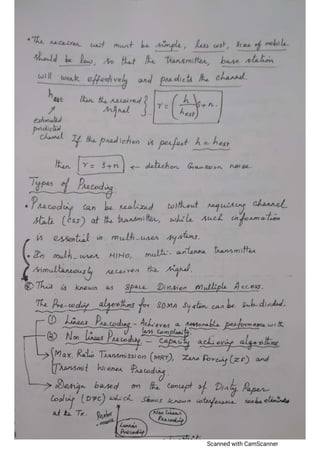 • The receiver unit must be simple, less cost, size of mobile
should be low, so that the transmitter, base station
will work effectively and predicts the channel.
hest then the received signal } r = (h/hest) s+n.
estimated
predicted
channel If the prediction is perfect h = hest
then r = s+n ← detection Gaussian noise
Types of Precoding
• Precoding can be realized without requiring channel
state (CSI) at the transmitter, while such information
is essential in multi-user systems.
• In multi-user MIMO, multi-antenna transmitter
simultaneously receives the signal.
This is known as Space Division Multiple Access.
The Pre-coding algorithms for SDMA System can be sub divided.
① Linear Precoding - Achieves a reasonable performance with
less complexity
② Non linear Precoding - capacity achieving algorithms
→ Max. Ratio Transmission (MRT), Zero Forcing (ZF) and
Transmit Wiener Precoding.
→ Design based on the concept of Dirty Paper
Coding (DPC) which shows known interference can be eliminated
at the Tx.
Linear
Precoding
Non Linear
Precoding
Scanned with CamScanner